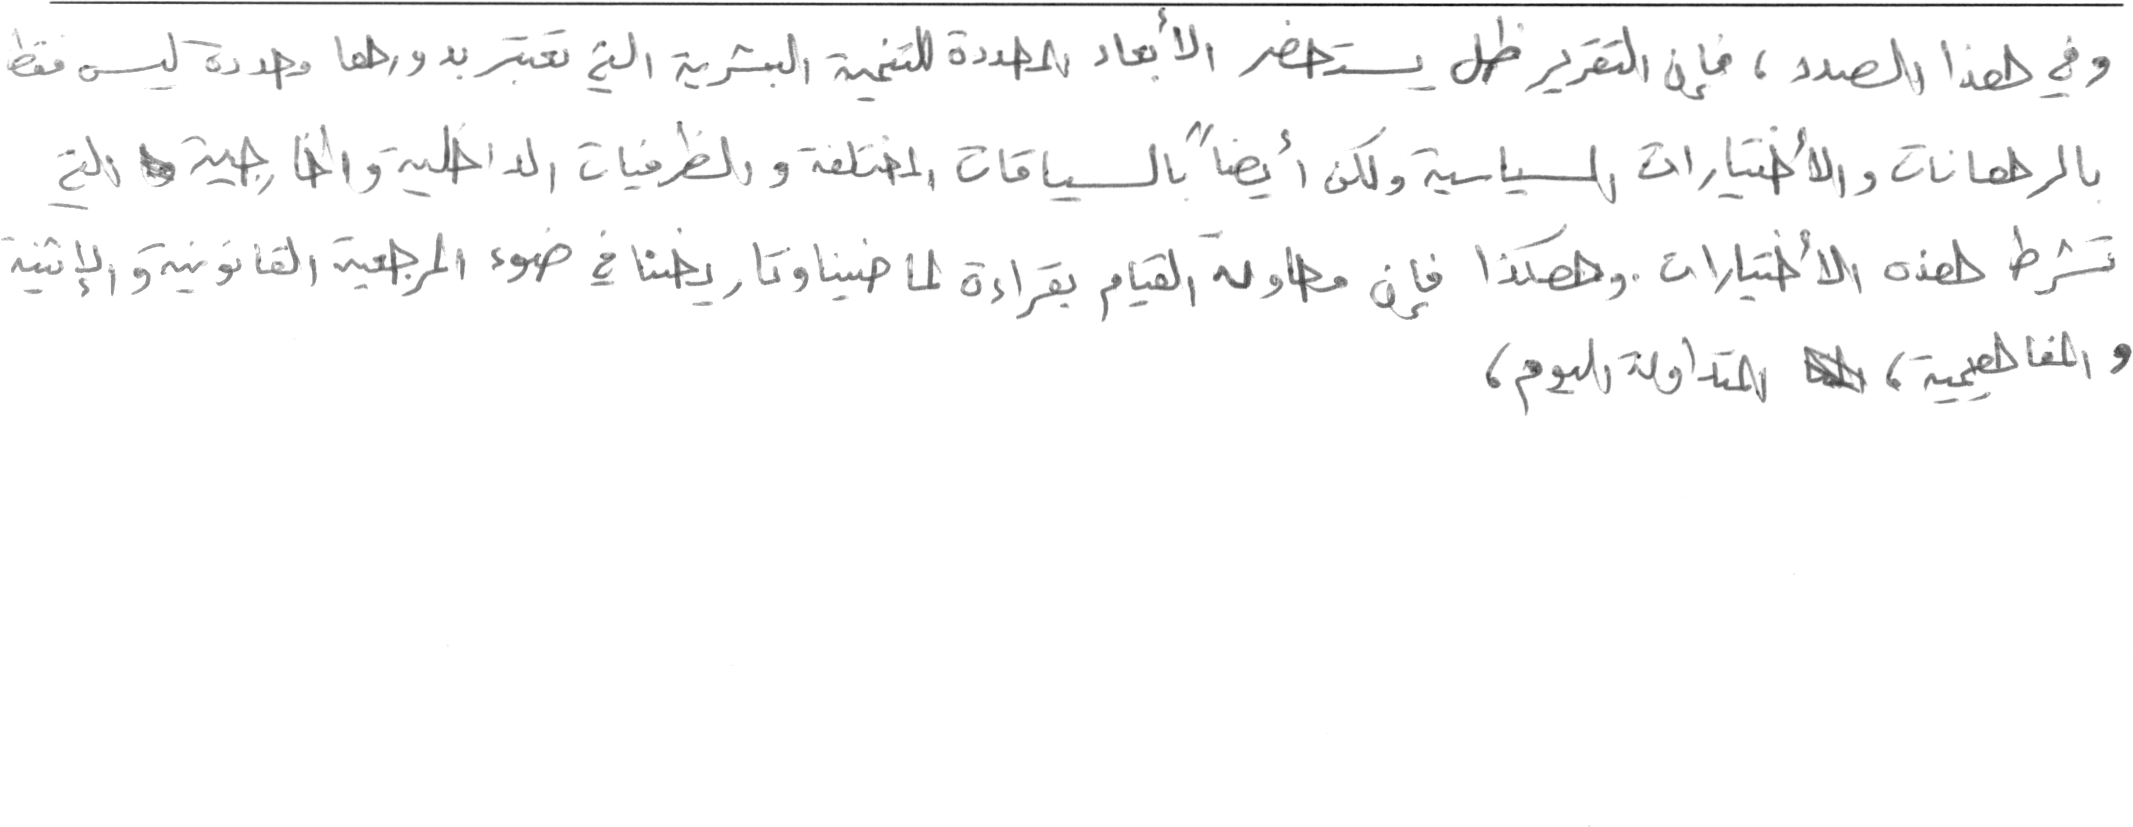 وفي هذا الصدد، فإن التقرير ظل يستحضر الأبعاد المحددة للتنمية البشرية التي تعتبر بدورها محددة ليس فقط
بالرهانات والأختيارات السياسية ولكن أيضاً بالسياقات المختلفة والظرفيات الداخلية والخارجية التي
تشرط هذه الأختيارات. وهكذا فإن محاولة القيام بقراءة لماضينا وتاريخنا في ضوء المرجعية القانونية والإثنية
والمفاهيمية، المتداولة اليوم،